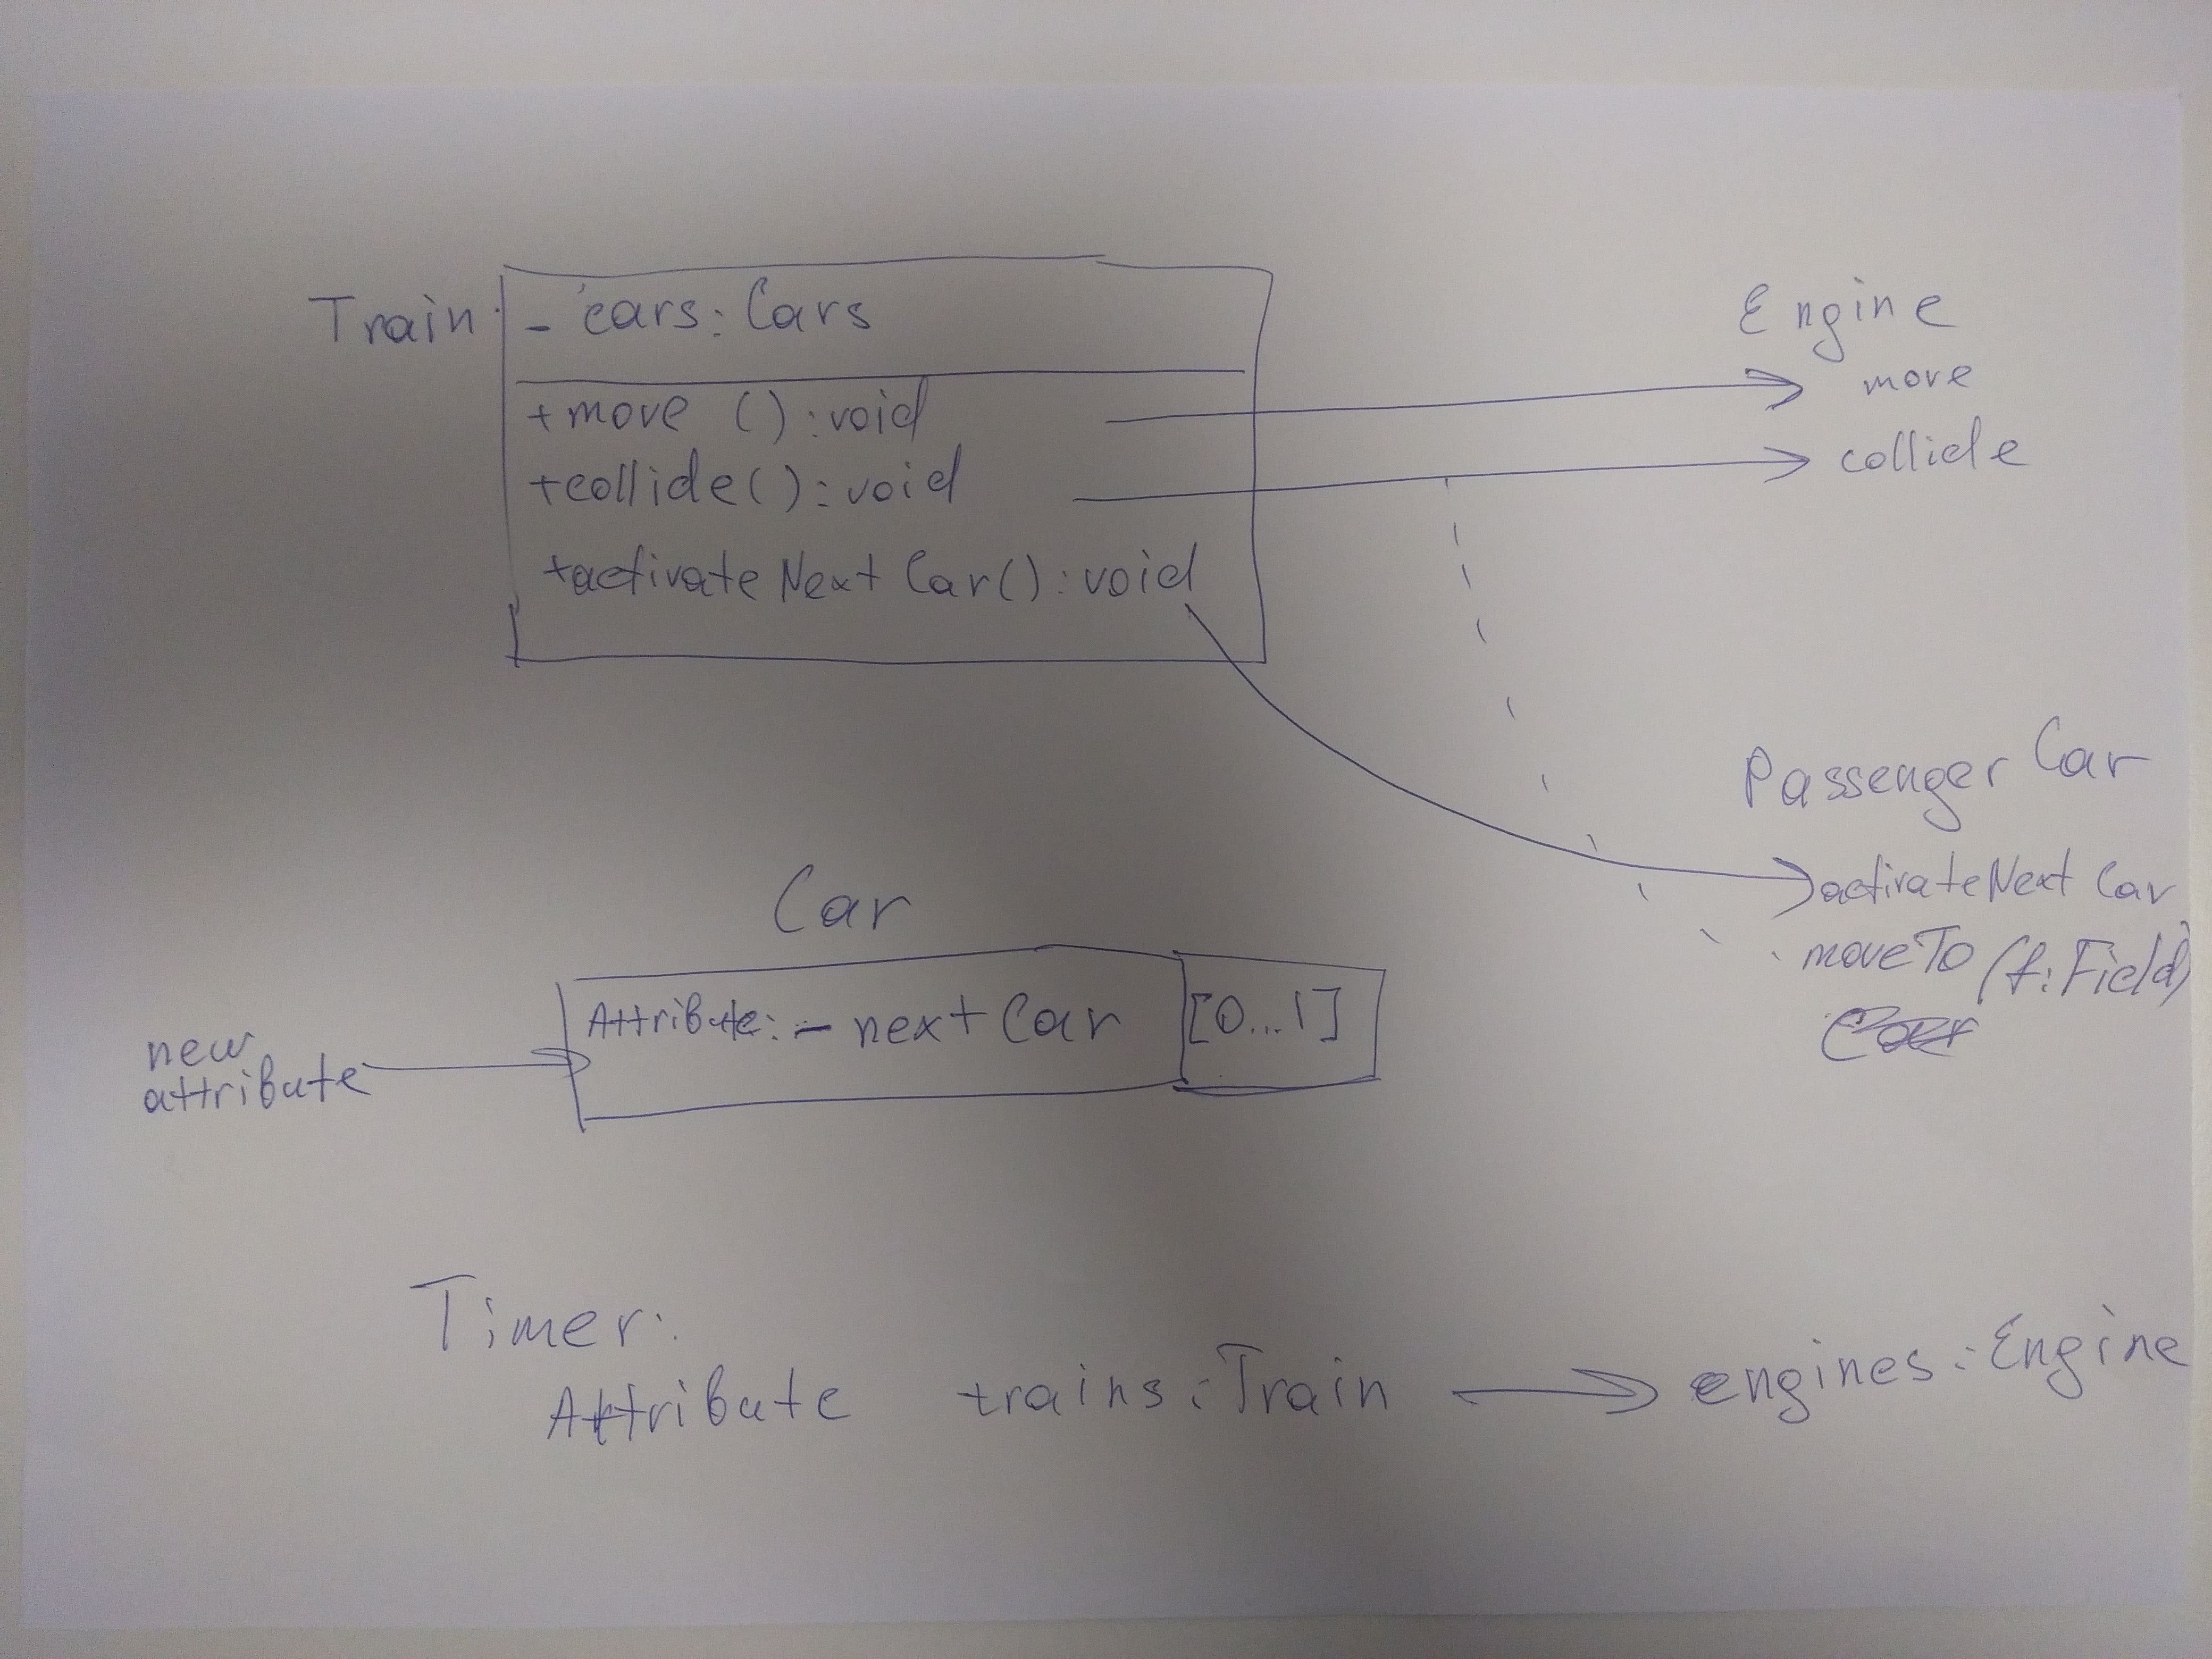 Train:
- cars: Cars
+move (): void
+collide(): void
+activateNextCar(): void
Engine
move
collide
PassengerCar
activateNextCar
moveTo (f: Field)
Car
Attribute: - nextCar [0...1]
new
attribute
Timer:
Attribute trains: Train → engines: Engine